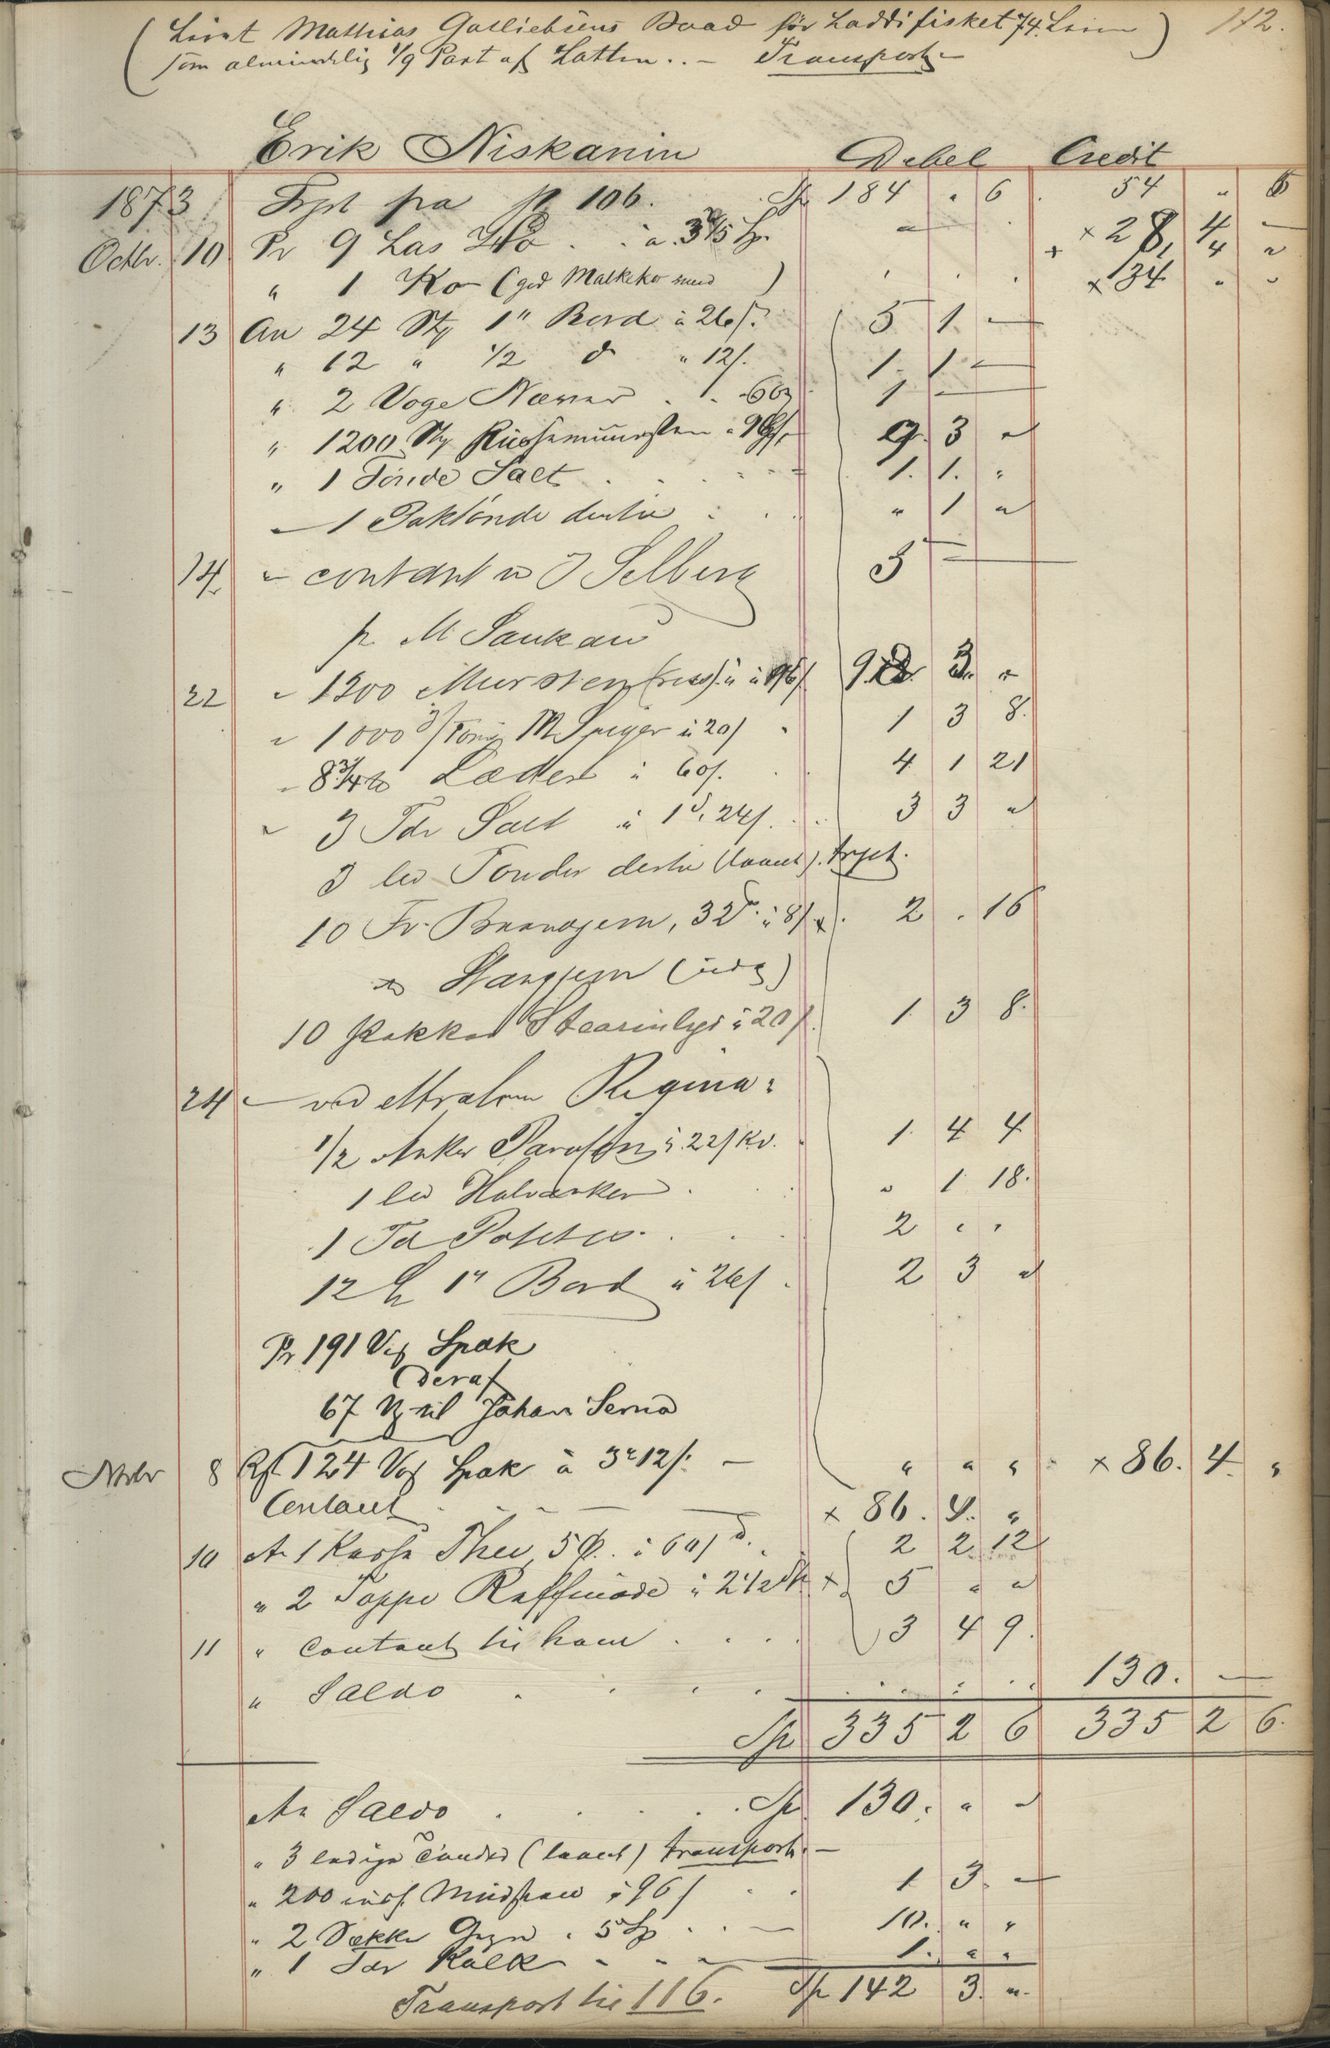 ( Laant Mathias Gotliebsens Baad før Loddefisket 74. Laan ) 112.
som almindelig 1/9 Part af Lotten .. - Transport -
Erik Niskanin Debet Credit
1873 Frpt fra p 106. Sp 184 " 6 54 " 5
Octbr. 10 Pr 9 Las Hø . . a 3 1/5 Sp. " × 28, 4 —
" 1 Ko (god Malkeko ) × 34 " "
13 An 24 Stk 1" Bord à 26 s. 5 1 —
" 12 " 1/2 d " 12 s. 1 1 —
" 2 Voge Næver . . - 60 s 1 —
" 1200 Stk Russemursten " 96 s. 9. 3 "
" 1 Tønde Salt . . . 1. 1. "
— 1 Paktønde dertil . . " 1 "
14 " contant v J Selberg 5 —
p. M Saukau
22 " 1200 Mursten (russ) " à 96 s. 9. 3. "
" 1000 3/Tom M Spiger à 20 s " 1 3 8.
" 8 3/4 ℔ Læder à 60 s. 4 1 21
" 3 Tdr Salt à 1 d. 24 s. 3 3 "
3 led Tønder dertil (laant). frpt.
10 Fv. Baandjern, 32 à 8 s 2 . 16
Stangjern (udg)
10 Pakker Stearinlys à 20 s. 1 3 8.
24 — ved Regina:
1/2 Anker Parafin à 22 s Kv. 1. 4 4
1 led Halvanker . " 1 18.
1 Td Poteter . . . 2 " "
12 St 1" Bord à 26 s . 2 3 "
Pr 191 Vog Spæk
(deraf
67 Vg til Johan Serna
Nvbr 8 124 Vog Spæk à 3 12 s. — " " " × 86. 4 "
Contant × 86. 4. "
10 An 1 Kasse Thee, 5 ℔. à 60 s . 2 2 12
" 2 Toppe Raffinade à 2 1/2 Sp × 5 " "
11 " contant til ham . . . . 3 4 9.
" Saldo . . . . 130. —
Sp 335 2 6 335 2 6.
An Saldo . . . . Sp. 130. " "
" 3 ledige Tønder (laant) transport. —
" 200 russ. Mursten à 96 s . . 1 3. —
" 2 Sække Gryn " 5 Sp . . — 10. " "
" 1 Tdr Kalk - - - 1. " "
Transport til 116. Sp 142 3. "